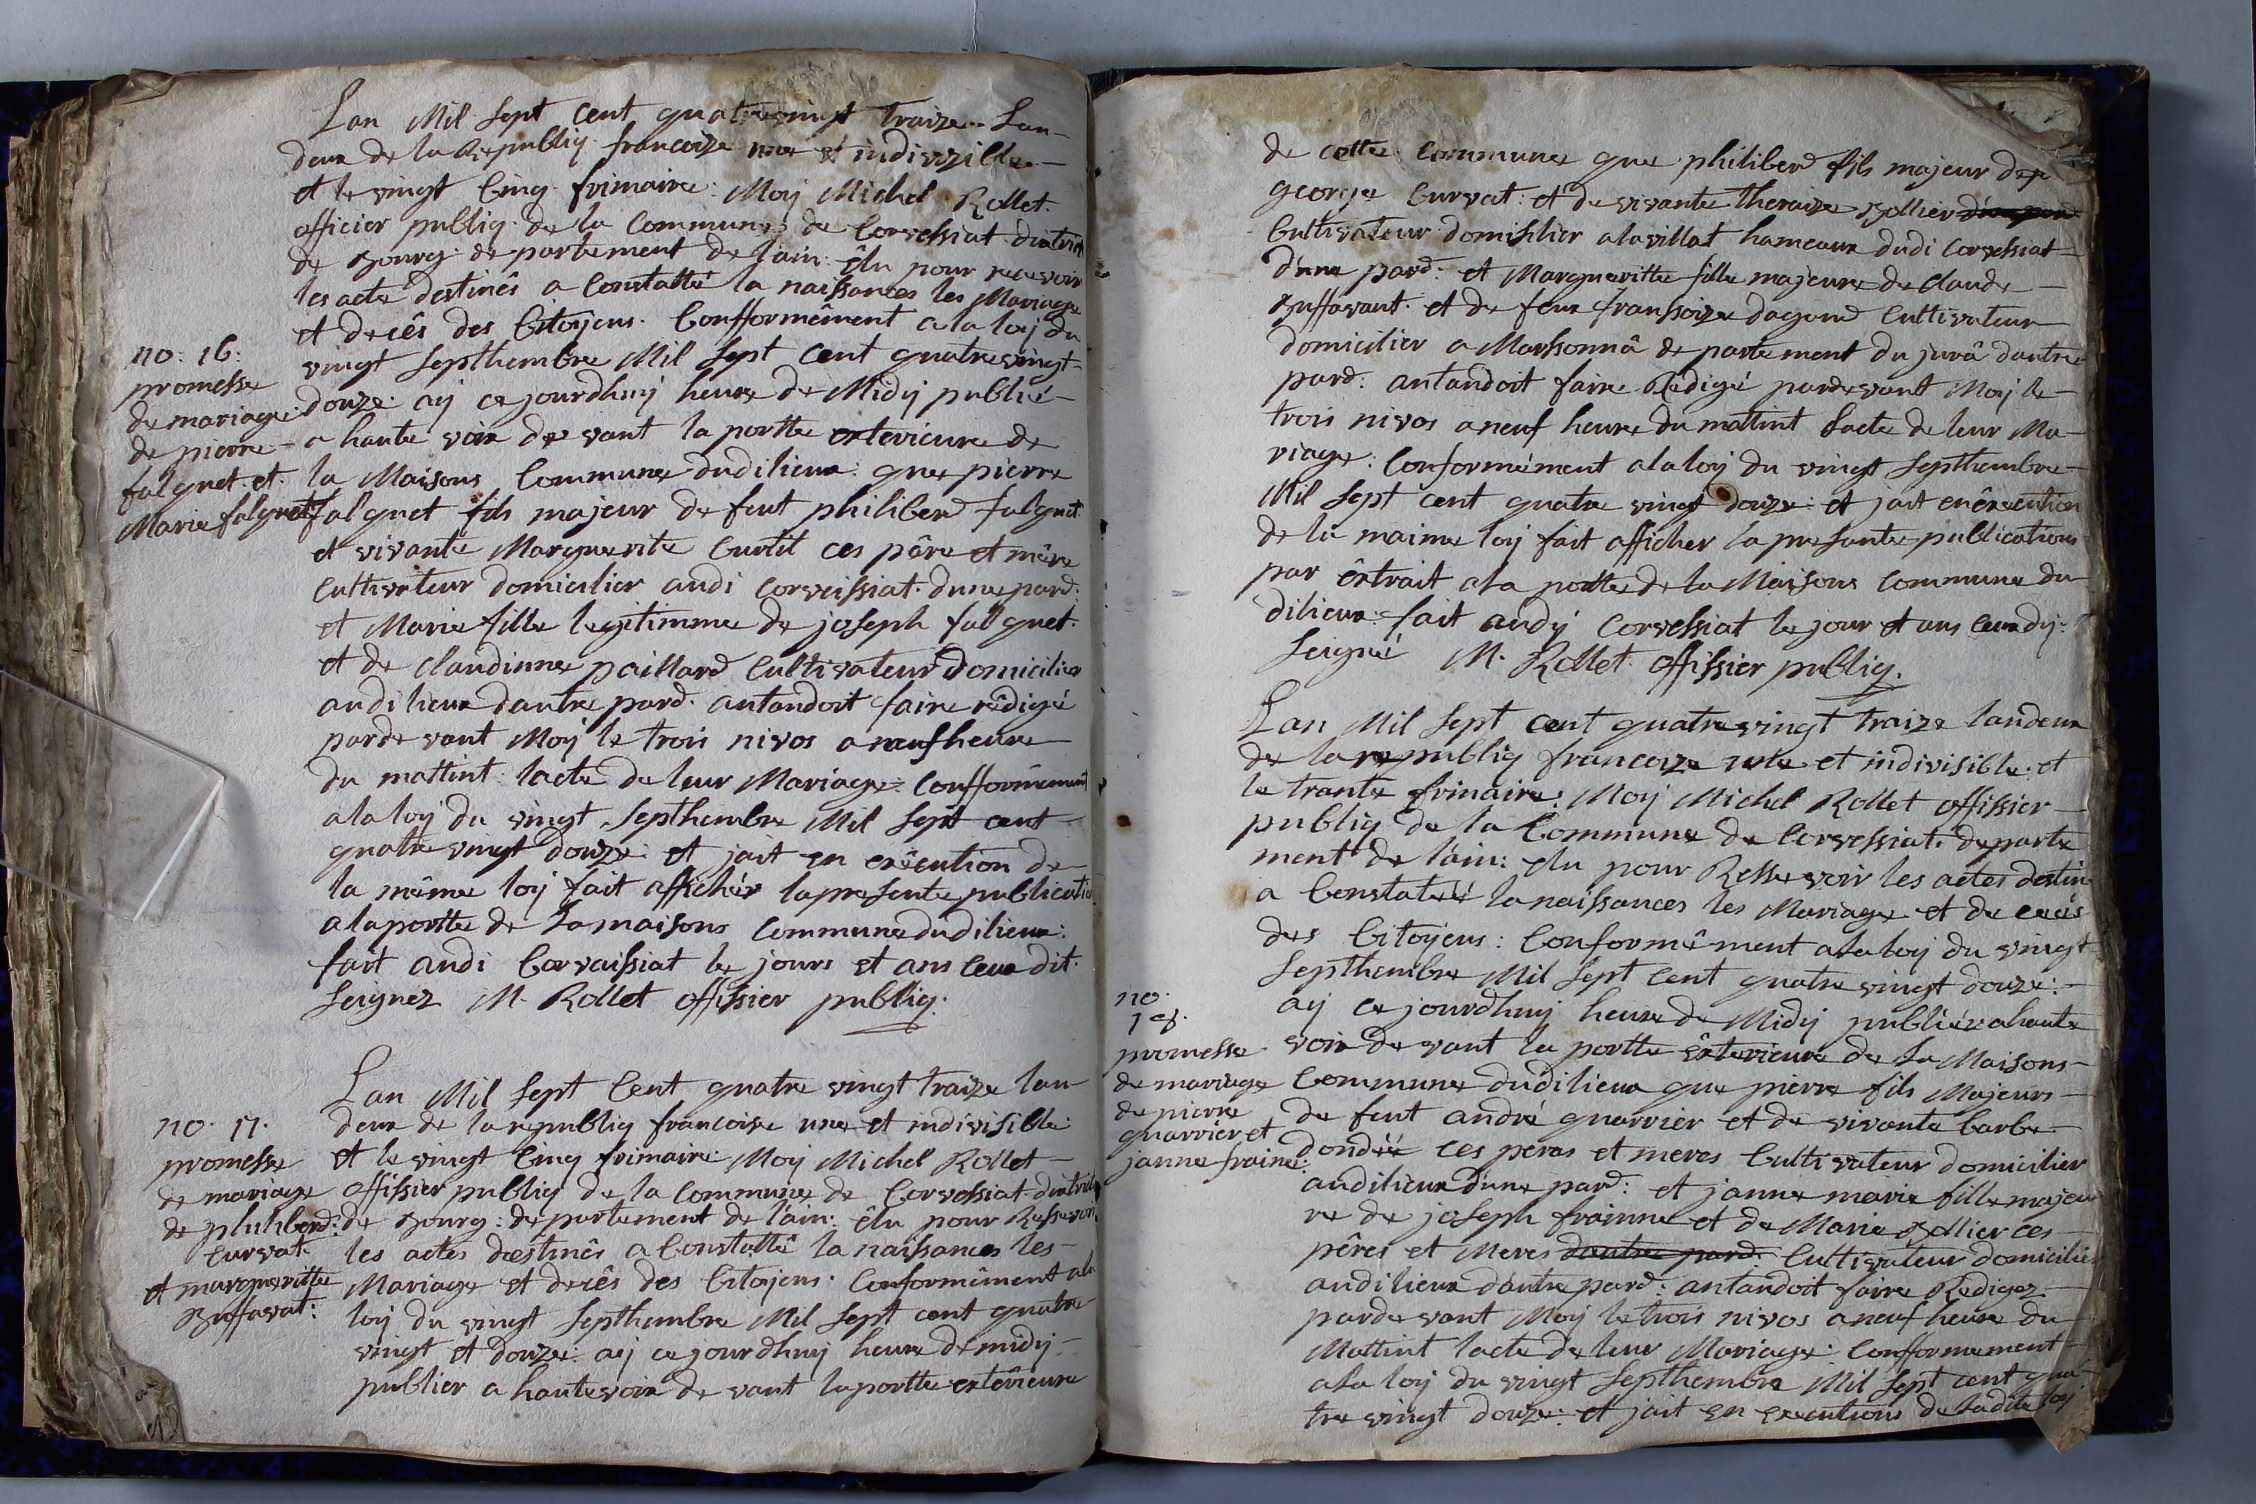 Lan Mil Sept Cent quatrevingt Traize. Lan
deux de la Republiq francoize une et indivizille
et le vingt Cinq frimaire: Moy Michel Rollet
officier publiq de la Commune de Corvessiat district
de Bourg departement de lain: élu pour recevoir
les acte destinés a Constatté la naissances les Mariage
et decês des Citoyens. Confformêment a la loy du
vingt Septhembre Mil Sept Cent quatre vingt
douze: ay ce jourdhuy heure de Midy publié
a haute voix devant la portte exterieure de
la Maisons Commune dudilieux: que pierre
falquet fils majeur de feut philiberd falquet
et vivante Marguerite Curtil ces pâre et mêre
Cultivateur domicilier audi Corveissiat dune pard:
et Marie fille legitimme de joseph falquet
et de Claudinne paillard Cultivateur domicilier
audilieux dautre pard. antandoit faire rêdigé
pardevant Moy le trois nivos a neuf heure
du mattint lacte de leur Mariage Confformêment
a la loy du vingt Septhembre Mil Sept cent
quatre vingt douze: et jait en exécution de
la même loy fait affichér la presente publication
a la portte de la maisons Commune dudilieux:
fait audi Corvaissiat le jours et ans ceux dit.
Seignez M. Rollet offissier publiq.
no. 16:
promesse
de mariage
de pierre
falquet et
Marie falquet
Lan Mil Sept Cent quatre vingt traize lan
deux de la republiq francoise une et indivisible:
et le vingt Cinq frimaire: Moy Michel Rollet
offissier publiq de la Commune de Corvessiat district
de Bourg: département de l'ain: élu pour Ressevoir
les actes destinês a Constattê la naissances les
Mariage et decês des Citoyens: Conformêment ala
loy du vingt Septhembre Mil Sept cent quatre
vingt et douze: ay ce jourdhuy heure de midy
publier a haute voix de vant la portte extêrieure
no. 17.
promesse
de mariage
de philiberd:
Curvat
et marguerittte
Buffavat:
de cette commune que philiberd fils majeur de
george Curvat: et de vivante theraize Bollier
Cultivateur domisilier a la villat hameaux dudi Corvessiat
d'une pard: et Margueritte fille majeure de claude
Buffavant. et de feux fransoize dagand Cultivateur
domicilier a Marssonnâ de partement du jurâ dautre
pard: antandoit faire Rédigé pardevant Moy le
trois nivos a neuf heure du mattint Lacte de leur Ma
riage: Conformément a la loy du vingt Septhembre
Mil Sept cent quatre vingt douze: et jait en êxecution
de la maime loy fait afficher la presante publications
par êxtrait a la portte de la Maisons commune du
dilieux: fait audy Corvessiat le jour et ans ceux dy:
Seigné M. Rollet offissier publiq.
Lan Mil Sept cent quatre vingt traize lan deux
de la republiq francoize une et indivisible: et
le trante frimaire: Moy Michel Rollet offissier
publiq de la Commune de Corvessiat. departe
ment de l'ain: élu pour Ressevoir les actes destin
a Constateré la naissances les Mariage et de ceés
des Citoyens: Conformêment a la loy du vingt
Septhembre Mil Sept Cent quatre vingt douze:
ay ce jourdhuy heure de Midy publiéz a haute
voix de vant la portte êxterieure de la Maisons
Commune dudilieux que pierre fils Majeurs
de feut andré quarrier et de vivante barbe
dondéé ces peres et meres Cultivateur domicilier
audilieux dune pard: et janne marie fille majeu
re de joseph frainne et de Marie Bollier ces
pêres et Meres dautre pard: Cultivateur domicilier
audilieux dautre pard: antandoit faire Rediger
pardevant Moy le trois nivos a neuf heure du
Mattint lacte de leur Mariage: Confformement
a la loy du vingt Septhembre Mil Sept cent qua
tre vingt douze: et jait en executions de ladite loy
no.
18.
promesse
de mariage
de pierre
quarrier et
janne fraine: